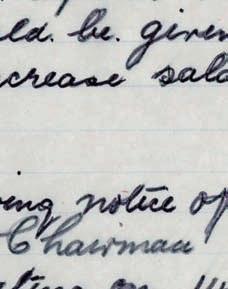 ld. be. given
crease sala
ing notice of
Chairman